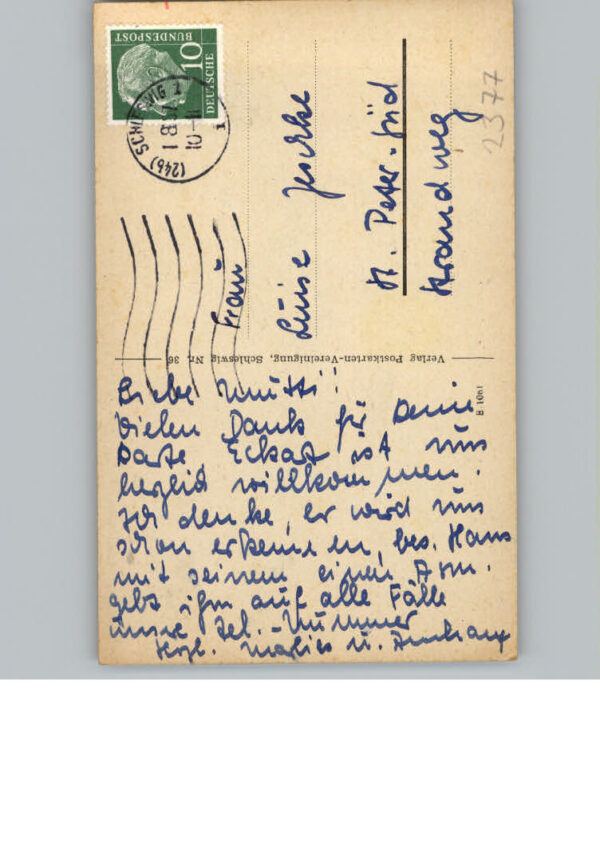 DEUTSCHE
BUNDESPOST
10
(24b) SCHLESWIG 1
10-11
Frau
Luise Jeschke
St. Peter-Süd
Strandweg
2377
Verlag Postkarten-Vereinigung, Schleswig Nr. 36
B 1061
Liebe Mutti!
Vielen Dank für Deine
Karte, Eckat ist uns
herzlich willkommen.
Ich denke, er wird uns
schon erkennen, bes. Hans
mit seinem einen Arm.
gebt ihm auf alle Fälle
unsre Tel.-Nummer
Herzl. Marlies u.